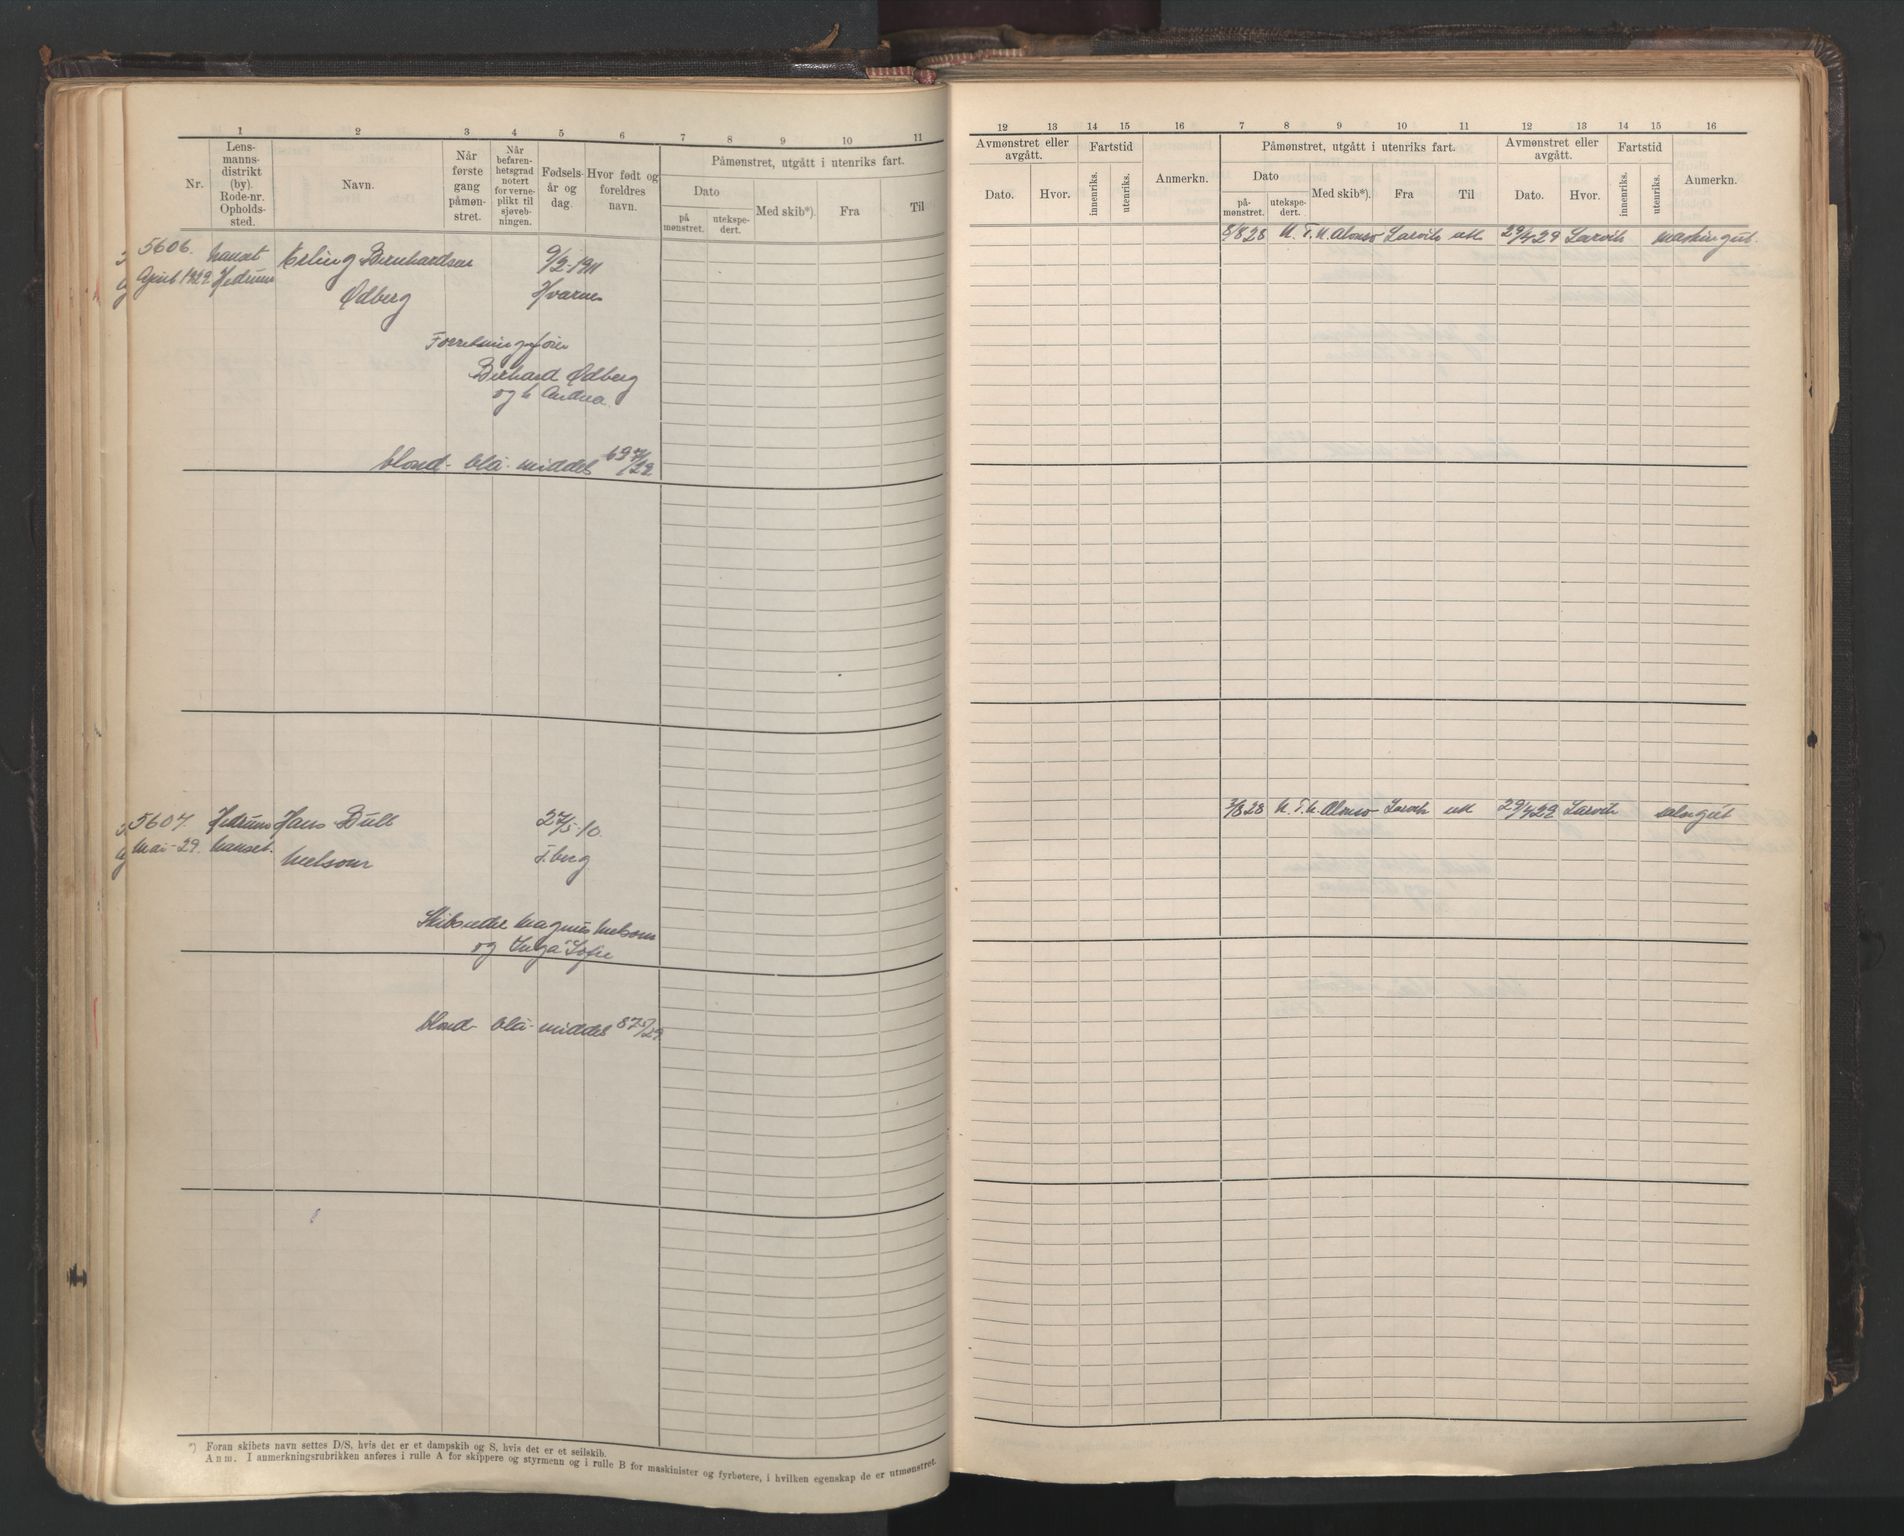 1 2 3 4 5 6 7 8 9 10 11
Nr.
Lens-
manns-
distrikt
(by).
Rode-nr.
Opholds-
sted.
Navn.
Når
første
gang
påmøn-
stret.
Når
befaren-
hetsgrad
notert
for verne-
plikt til
sjøveb-
ningen.
Fødsels-
år og
dag.
Hvor født og
foreldres
navn.
Påmønstret, utgått i utenriks fart.
Dato
på
mønstret.
utekspe-
dert.
Med skib*).
Fra
Til
5606. Nanset Erling Bernhardsen 9/2-1911
April 1929 Hedrum Ødberg Hvarnes
Forretningsfører
Bernhard Ødberg
og h Andrea
blond - blå - middel
5607. Hedrum Hans Bull 27/5-10.
Mai-29. Nanset. Melsom T.berg
Skibsreder Magnus Melsom
og Inga Sofie
blond - blå - middel
*) Foran skibets navn settes D/S, hvis det er et dampskib og S, hvis det er et seilskib.
Anm. I anmerkningsrubrikken anføres i rulle A for skippere og styrmenn og i rulle B for maskinister og fyrbøtere, i hvilken egenskap de er utmønstret.
12 13 14 15 16 7 8 9 10 11 12 13 14 15 16
Avmønstret eller
avgått.
Dato.
Hvor.
Fartstid
innenriks.
utenriks.
Anmerkn.
Påmønstret, utgått i utenriks fart.
Dato
på-
mønstret.
utekspe-
dert.
Med skib*).
Fra
Til
Avmønstret eller
avgått.
Dato.
Hvor.
Fartstid
innenriks.
utenriks.
Anmerkn.
8/8 28 M. T. N. Alonso Larvik utl 29/4 29 Larvik maskingut.
7/8 28 M. T. N. Alonso Larvik utl 29/4 29 Larvik salongut